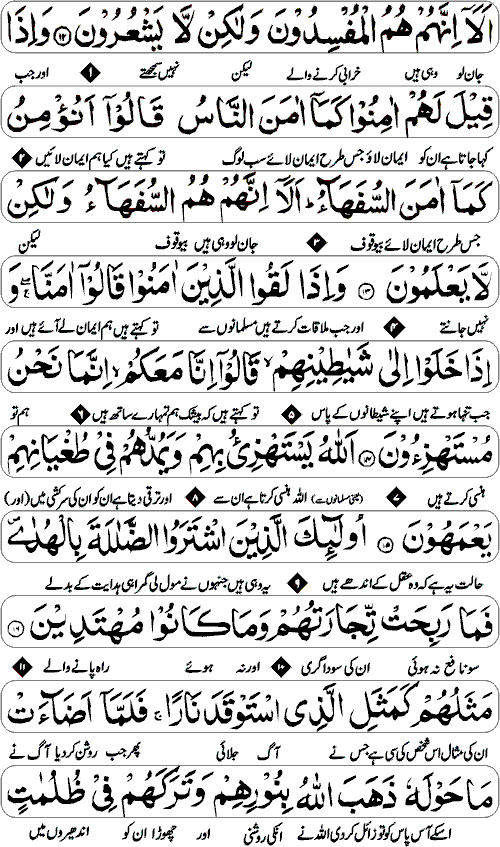 اَلَاۤ اِنَّهُمْ هُمُ الْمُفْسِدُوْنَ وَلٰكِنْ لَّا يَشْعُرُوْنَ ﴿۱۲﴾ وَاِذَا
جان لو وہی ہیں خرابی کرنے والے لیکن نہیں سمجھتے ۱ اور جب
قِيْلَ لَهُمْ اٰمِنُوْا كَمَاۤ اٰمَنَ النَّاسُ قَالُوْۤا اَنُؤْمِنُ
کہا جاتا ہے ان کو ایمان لاؤ جس طرح ایمان لائے سب لوگ تو کہتے ہیں کیا ہم ایمان لائیں ۲
كَمَاۤ اٰمَنَ السُّفَهَآءُ ؕ اَلَاۤ اِنَّهُمْ هُمُ السُّفَهَآءُ وَلٰكِنْ
جس طرح ایمان لائے بیوقوف ۳ جان لو وہی ہیں بیوقوف لیکن
لَّا يَعْلَمُوْنَ ﴿۱۳﴾ وَاِذَا لَقُوا الَّذِيْنَ اٰمَنُوْا قَالُوْۤا اٰمَنَّا ۚۖ وَ
نہیں جانتے ۴ اور جب ملاقات کرتے ہیں مسلمانوں سے تو کہتے ہیں ہم ایمان لے آئے ہیں اور
اِذَا خَلَوْا اِلٰى شَيٰطِيْنِهِمْ ۙ قَالُوْۤا اِنَّا مَعَكُمْ ۙ اِنَّمَا نَحْنُ
جب تنہا ہوتے ہیں اپنے شیطانوں کے پاس ۵ تو کہتے ہیں کہ بیشک ہم تمہارے ساتھ ہیں ۶ ہم تو
مُسْتَهْزِءُوْنَ ﴿۱۴﴾ اَللّٰهُ يَسْتَهْزِئُ بِهِمْ وَيَمُدُّهُمْ فِىْ طُغْيَانِهِمْ
ہنسی کرتے ہیں ۷ (یعنی مسلمانوں سے) اللہ ہنسی کرتا ہے ان سے ۸ اور ترقی دیتا ہے ان کو ان کی سرکشی میں (اور)
يَعْمَهُوْنَ ﴿۱۵﴾ اُولٰٓئِكَ الَّذِيْنَ اشْتَرَوُا الضَّلٰلَةَ بِالْهُدٰى
حالت یہ ہے کہ وہ عقل کے اندھے ہیں ۹ یہ وہی ہیں جنہوں نے مول لی گمراہی ہدایت کے بدلے
فَمَا رَبِحَتْ تِّجَارَتُهُمْ وَمَا كَانُوْا مُهْتَدِيْنَ ﴿۱۶﴾
سو نافع نہ ہوئی ان کی سوداگری ۱۰ اور نہ ہوئے راہ پانے والے ۱۱
مَثَلُهُمْ كَمَثَلِ الَّذِى اسْتَوْقَدَ نَارًا ۚ فَلَمَّاۤ اَضَآءَتْ
ان کی مثال اس شخص کی سی ہے جس نے آگ جلائی پھر جب روشن کر دیا آگ نے
مَا حَوْلَهٗ ذَهَبَ اللّٰهُ بِنُوْرِهِمْ وَتَرَكَهُمْ فِىْ ظُلُمٰتٍ
اسکے آس پاس کو تو زائل کر دی اللہ نے انکی روشنی اور چھوڑا ان کو اندھیروں میں